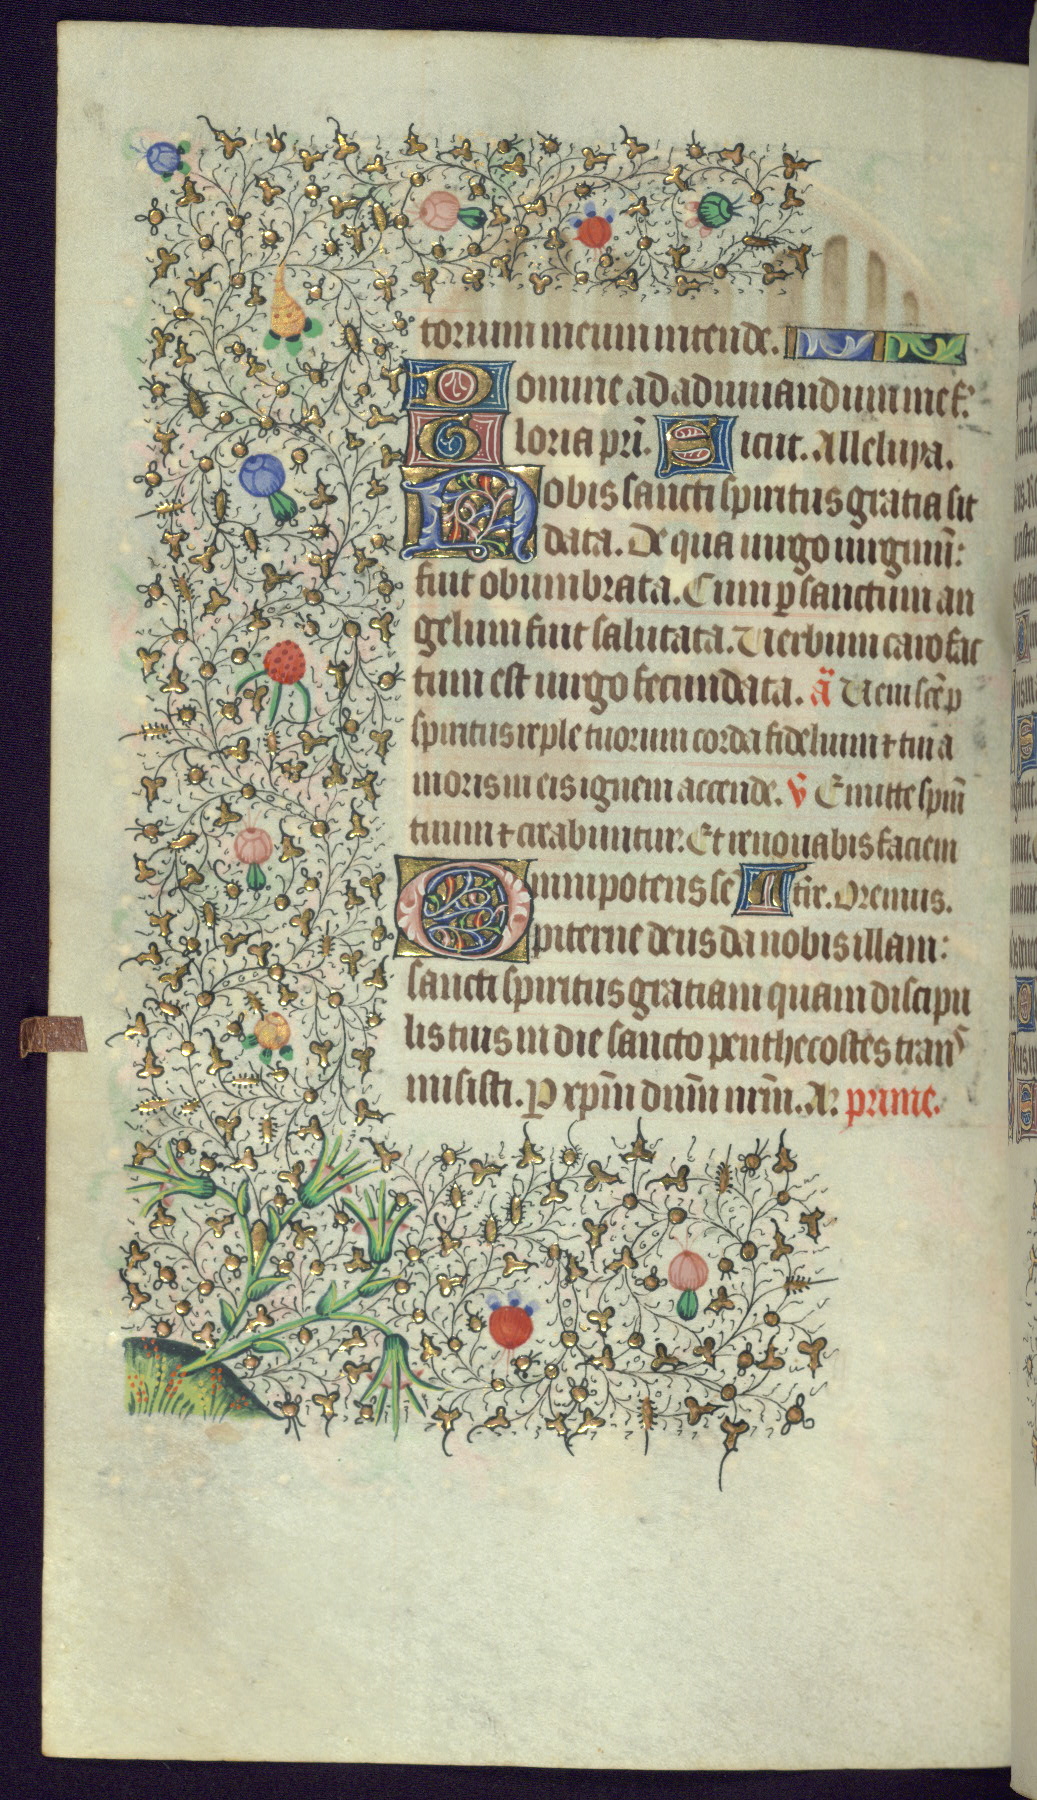 torium meum intende.
Domine ad adiuuandum me f.
Gloria pri. Sicut. Alleluya.
Nobis sancti spiritus gratia sit
data. De qua uirgo uirginū:
fuit obumbrata. Cum p sanctum an
gelum fuit salutata. Uerbum caro fac
tum est uirgo fecundata. ā Ueni scē p
spiritus reple tuorum corda fidelium ⁊ tui a
moris in eis ignem accende. v̄ Emitte spm̄
tuum ⁊ creabuntur. Et renouabis faciem
Omnipotens sē A tr̄e. Oremus.
piterne deus da nobis illam:
sancti spiritus gratiam quam discipu
lis tuis in die sancto penthecostes trans
misisti. P xpm̄ dnm̄ nrm̄. A. prime.